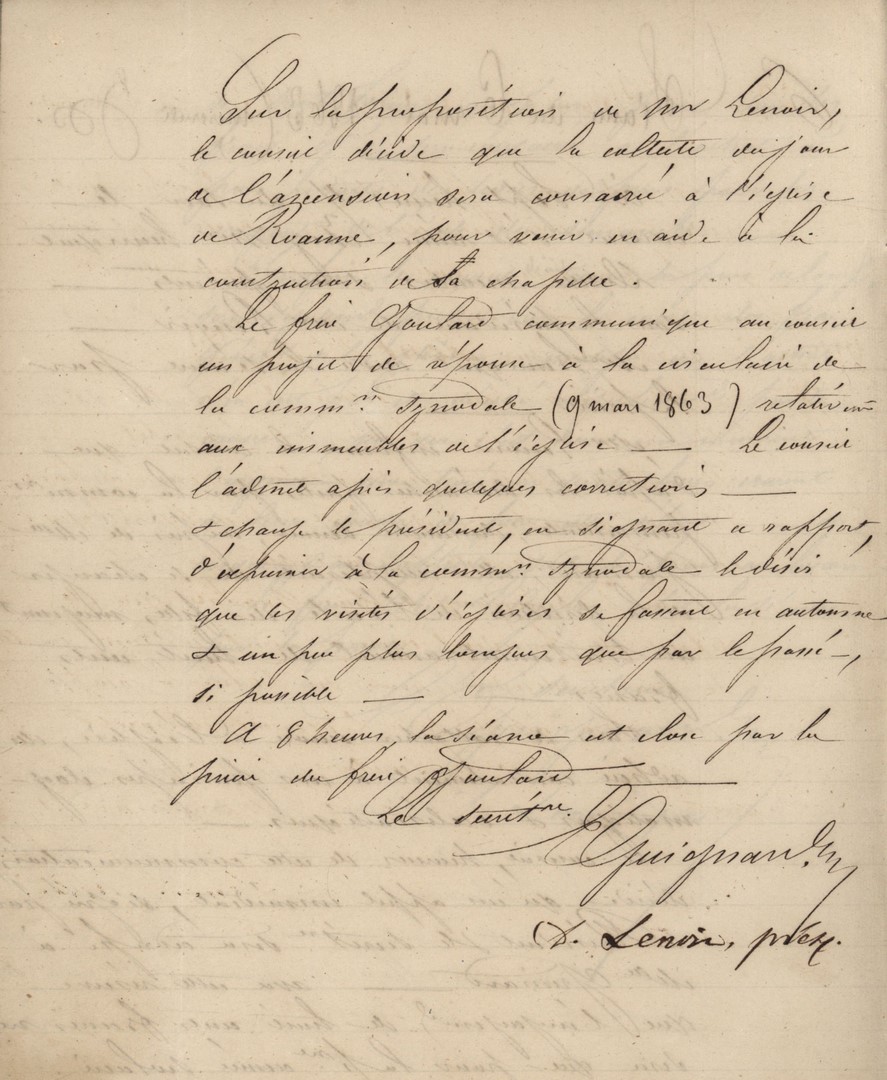 Sur la proposition de Mr Lenoir,
le conseil décide que la collecte du jour
de l'ascension sera consacrée à l'église
de Roanne, pour venir en aide à la
construction de sa chapelle.
Le frère Goulard communique au conseil
un projet de réponse à la circulaire de
la common synodale (9 mars 1863) relativemt
aux immeubles de l'église — Le conseil
l'admet après quelques corrections —
& charge le président, en signant ce rapport,
d'exprimer à la common synodale le désir
que les visites d'églises se fassent en automne
& un peu plus longues que par le passé —,
si possible —
A 8 heures, la séance est close par la
prière du frère Goulard
Le secrétre.
Guignard
Lenoir, prést.